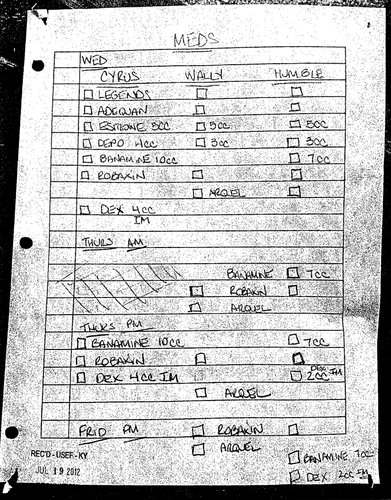 MEDS
WED
CYRUS WALLY HUMBLE
LEGENDS
ADEQUAN
ESTRONE 5cc 5cc 5cc
DEPO 4cc 3cc 3cc
BANAMINE 10cc 7cc
ROBAXIN
ARQEL
DEX 4cc
IM
THURS AM
BANAMINE 7cc
ROBAXIN
ARQEL
THURS PM
BANAMINE 10cc 7cc
ROBAXIN
DEX 4cc IM DEX 2cc IM
ARQEL
FRID PM ROBAXIN
REC'D - USEF - KY ARQEL
BANAMINE 7cc
JUL 19 2012
DEX 2cc IM